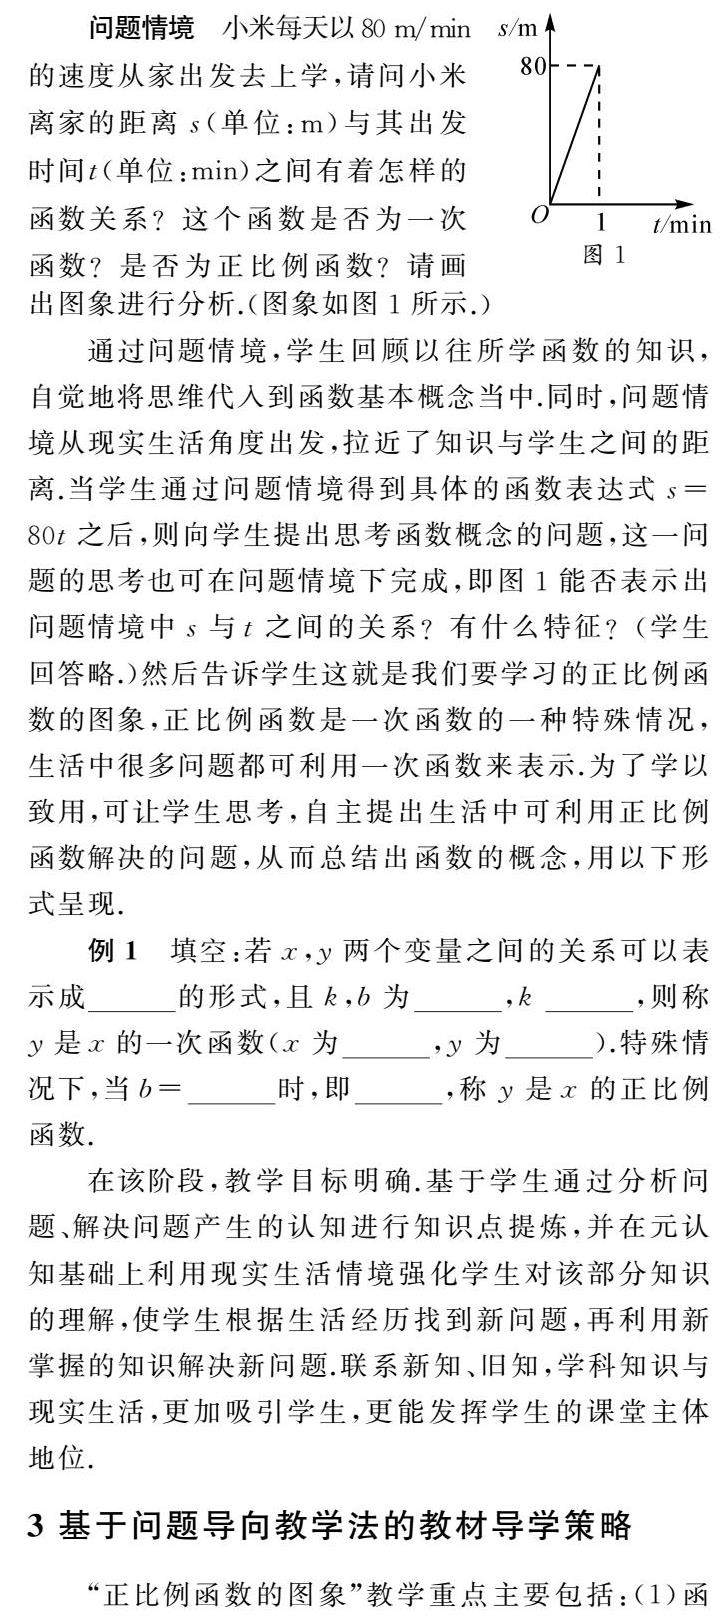 问题情境 小米每天以 80 m/min
的速度从家出发去上学,请问小米
离家的距离 s(单位:m)与其出发
时间t(单位:min)之间有着怎样的
函数关系? 这个函数是否为一次
函数? 是否为正比例函数? 请画
出图象进行分析.(图象如图 1 所示.)
s/m
80
O
1
t/min
图 1
通过问题情境,学生回顾以往所学函数的知识,
自觉地将思维代入到函数基本概念当中.同时,问题情
境从现实生活角度出发,拉近了知识与学生之间的距
离.当学生通过问题情境得到具体的函数表达式 s=
80t 之后,则向学生提出思考函数概念的问题,这一问
题的思考也可在问题情境下完成,即图 1 能否表示出
问题情境中 s 与 t 之间的关系? 有什么特征? (学生
回答略.)然后告诉学生这就是我们要学习的正比例函
数的图象,正比例函数是一次函数的一种特殊情况,
生活中很多问题都可利用一次函数来表示.为了学以
致用,可让学生思考,自主提出生活中可利用正比例
函数解决的问题,从而总结出函数的概念,用以下形
式呈现.
例 1 填空:若 x,y 两个变量之间的关系可以表
示成______的形式,且 k,b 为______,k ______,则称
y 是 x 的一次函数(x 为______,y 为______).特殊情
况下,当 b=______时,即______,称 y 是 x 的正比例
函数.
在该阶段,教学目标明确.基于学生通过分析问
题、解决问题产生的认知进行知识点提炼,并在元认
知基础上利用现实生活情境强化学生对该部分知识
的理解,使学生根据生活经历找到新问题,再利用新
掌握的知识解决新问题.联系新知、旧知,学科知识与
现实生活,更加吸引学生,更能发挥学生的课堂主体
地位.
3 基于问题导向教学法的教材导学策略
“正比例函数的图象”教学重点主要包括:(1)函